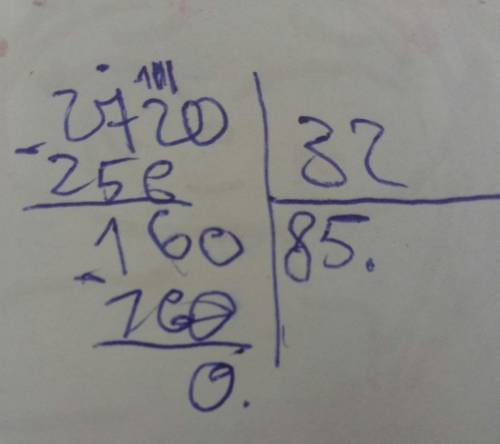 2720 32
- 256 85.
160
- 160
0.